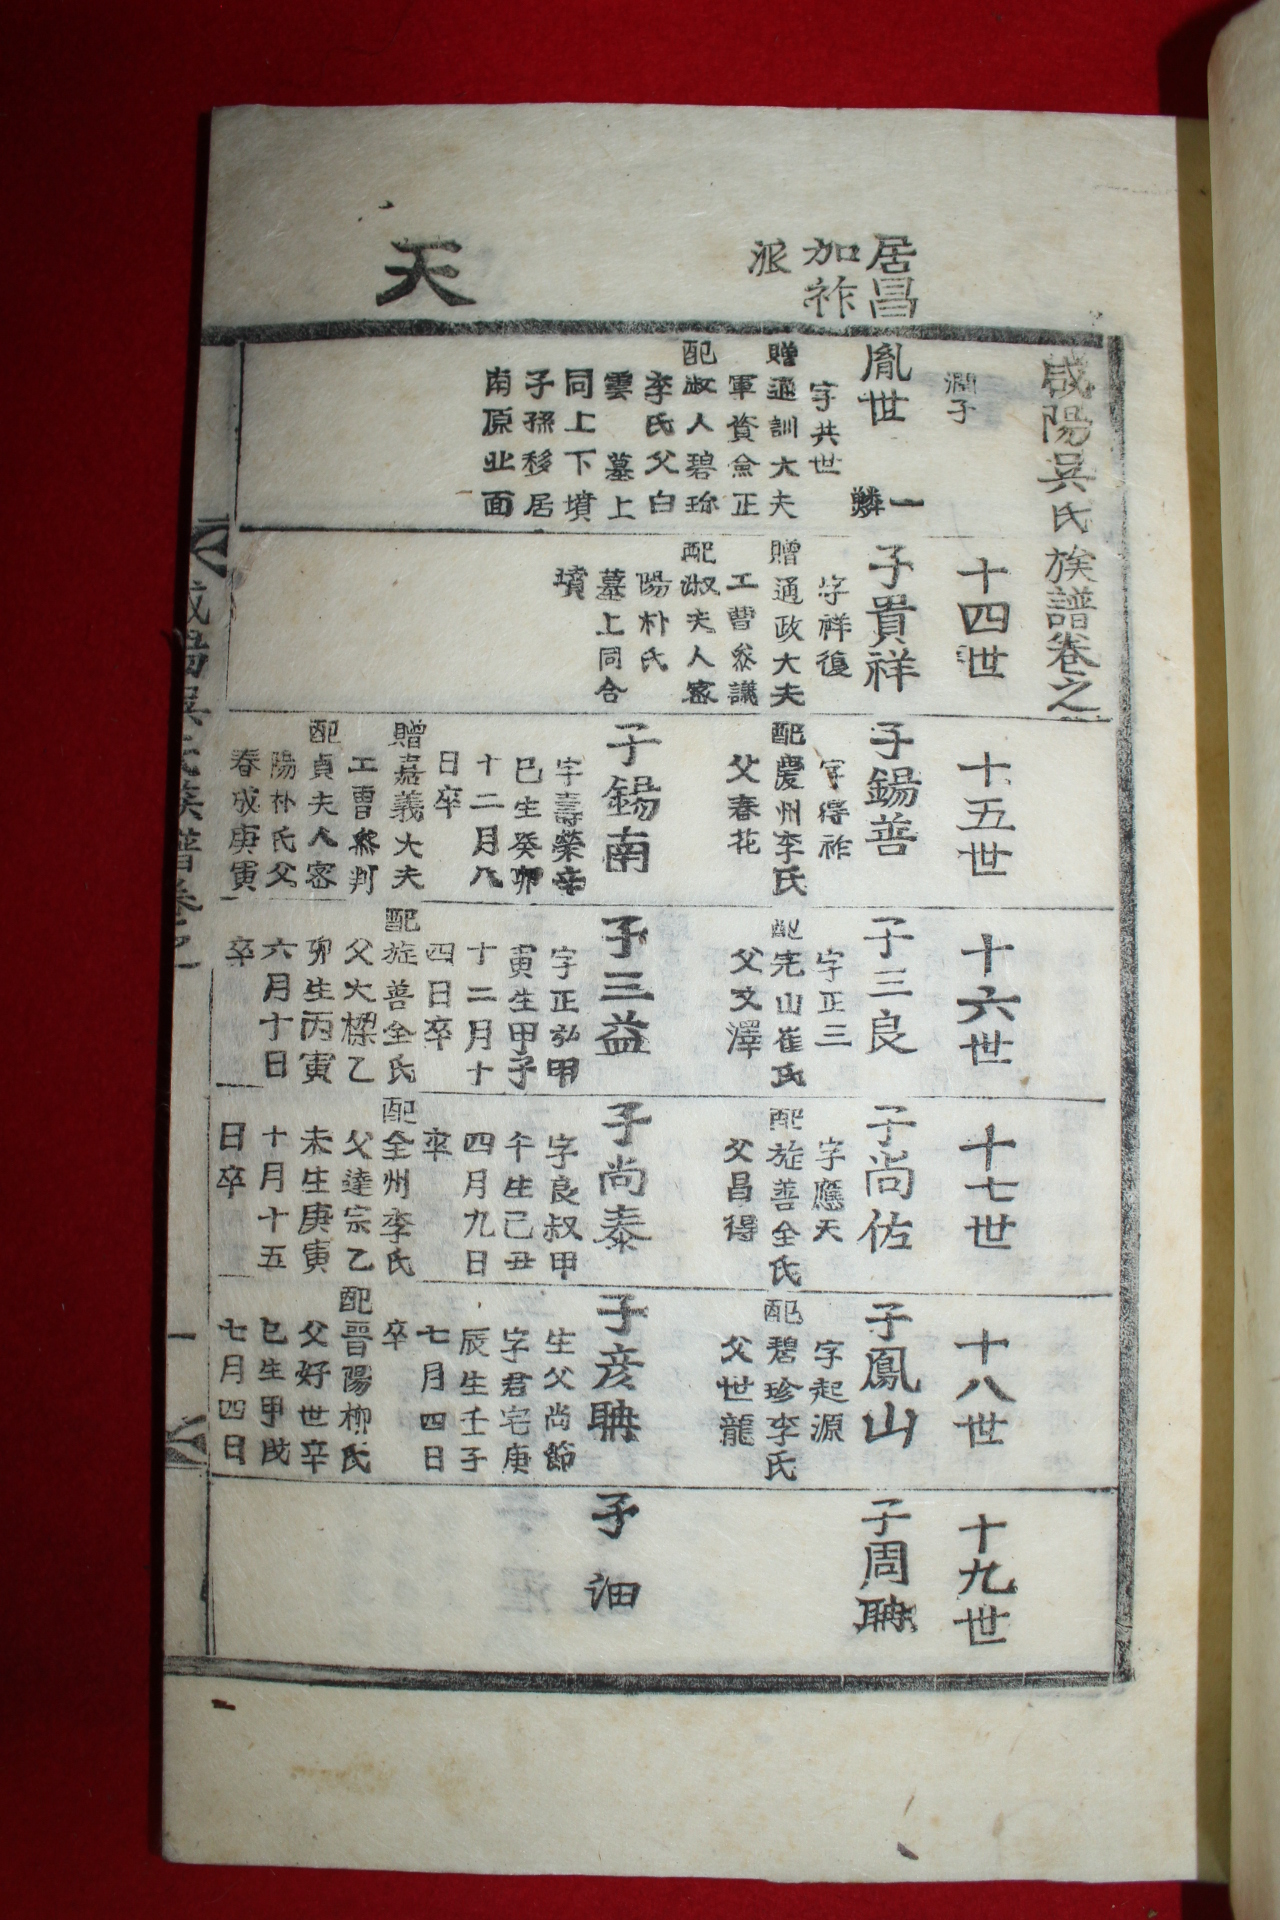 咸陽吳氏族譜卷之一
居昌
加祚
派
天
澗子
胤世
一
麟
字共世
贈通訓大夫
軍資僉正
配淑人碧珍
李氏父白
雲墓上
同上下墳
子孫移居
南原北面
十四世
子貴祥
字祥復
贈通政大夫
工曹叅議
配淑夫人密
陽朴氏
墓上同合
墳
十五世
子錫善
字得祚
配慶州李氏
父春花
子錫南
字壽榮辛
巳生癸卯
十二月八
日卒
贈嘉義大夫
工曹叅判
配貞夫人密
陽朴氏父
春成庚寅
十六世
子三良
字正三
配完山崔氏
父文澤
子三益
字正弘甲
寅生甲子
十二月十
四日卒
配旌善全氏
父大樑乙
卯生丙寅
六月十日
卒
十七世
子尚佐
字應天
配旌善全氏
父昌得
子尚泰
字良叔甲
午生己丑
四月九日
卒
配全州李氏
父達宗乙
未生庚寅
十月十五
日卒
十八世
子鳳山
字起源
配碧珍李氏
父世龍
子彦聃
生父尚節
字君宅庚
辰生壬子
七月四日
卒
配晋陽柳氏
父好世辛
巳生甲戌
七月四日
十九世
子周聃
子
咸陽吳氏族譜卷之一
一